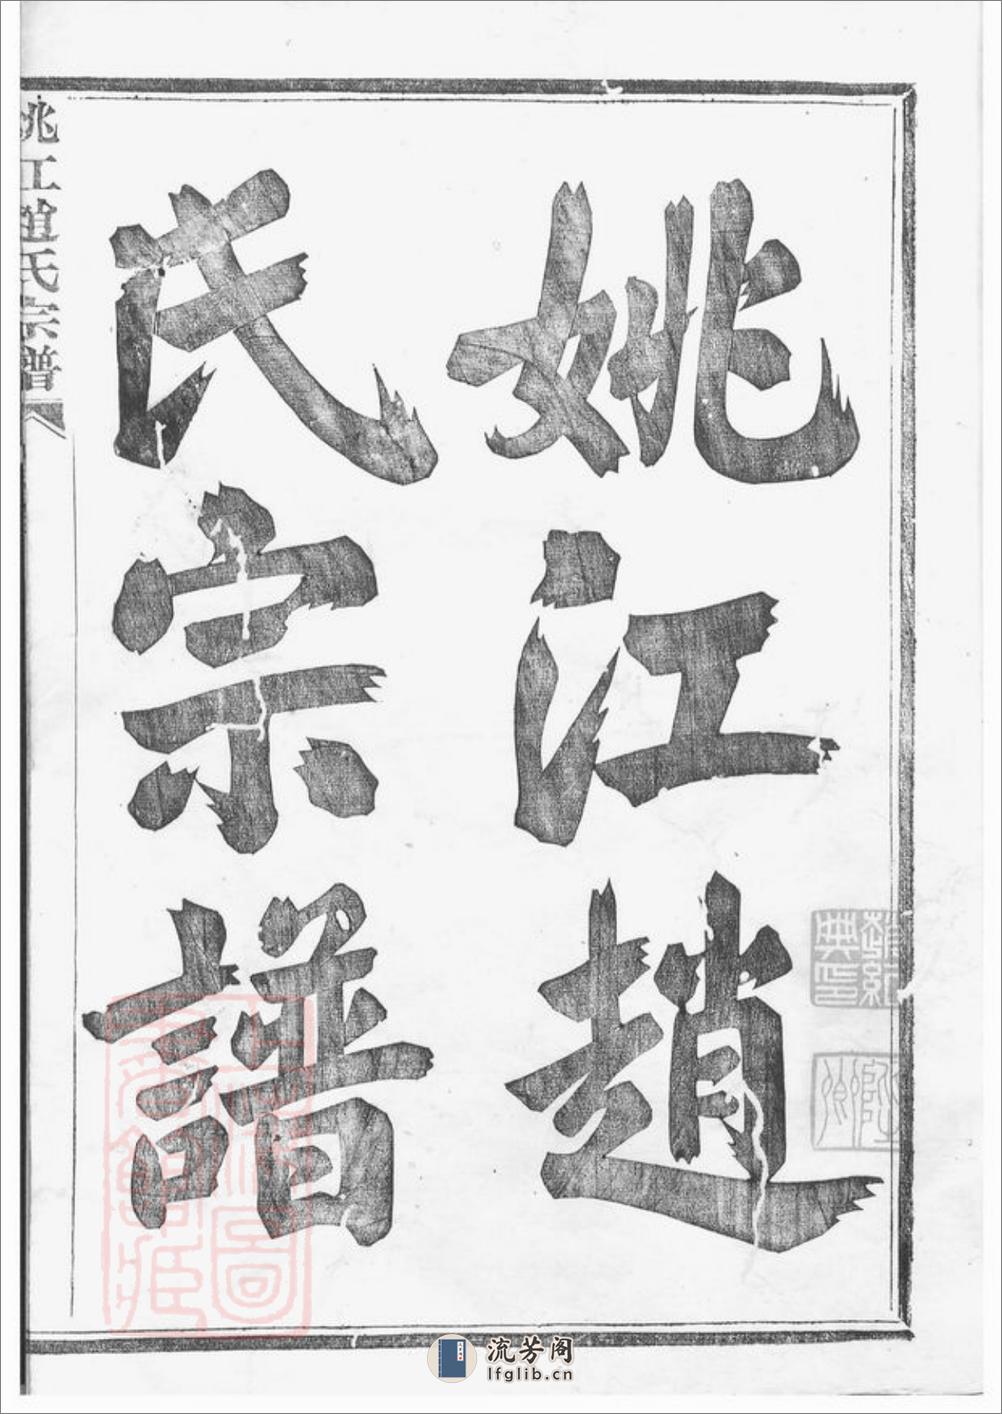 姚江趙
氏宗譜
姚江趙氏宗譜
流芳阁
lfglib.cn